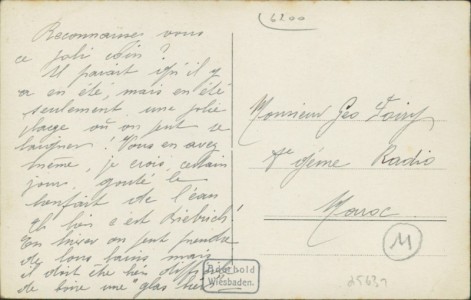 6200
Reconnaissez vous
ce joli coin?
Il parait qu'il y
a en été, mais en été
seulement une jolie
plage où on peut se
baigner! Vous en avez
même, je crois, certain
jour, goûté le
bienfait de l'eau
Eh bien c'est Biebrich!
En hiver on peut prendre
de bons bains mais
il doit être bien difficile
de boire une "glas bier"
Monsieur Geo
Radio
Maroc
M
25631
Agethold
Wiesbaden.